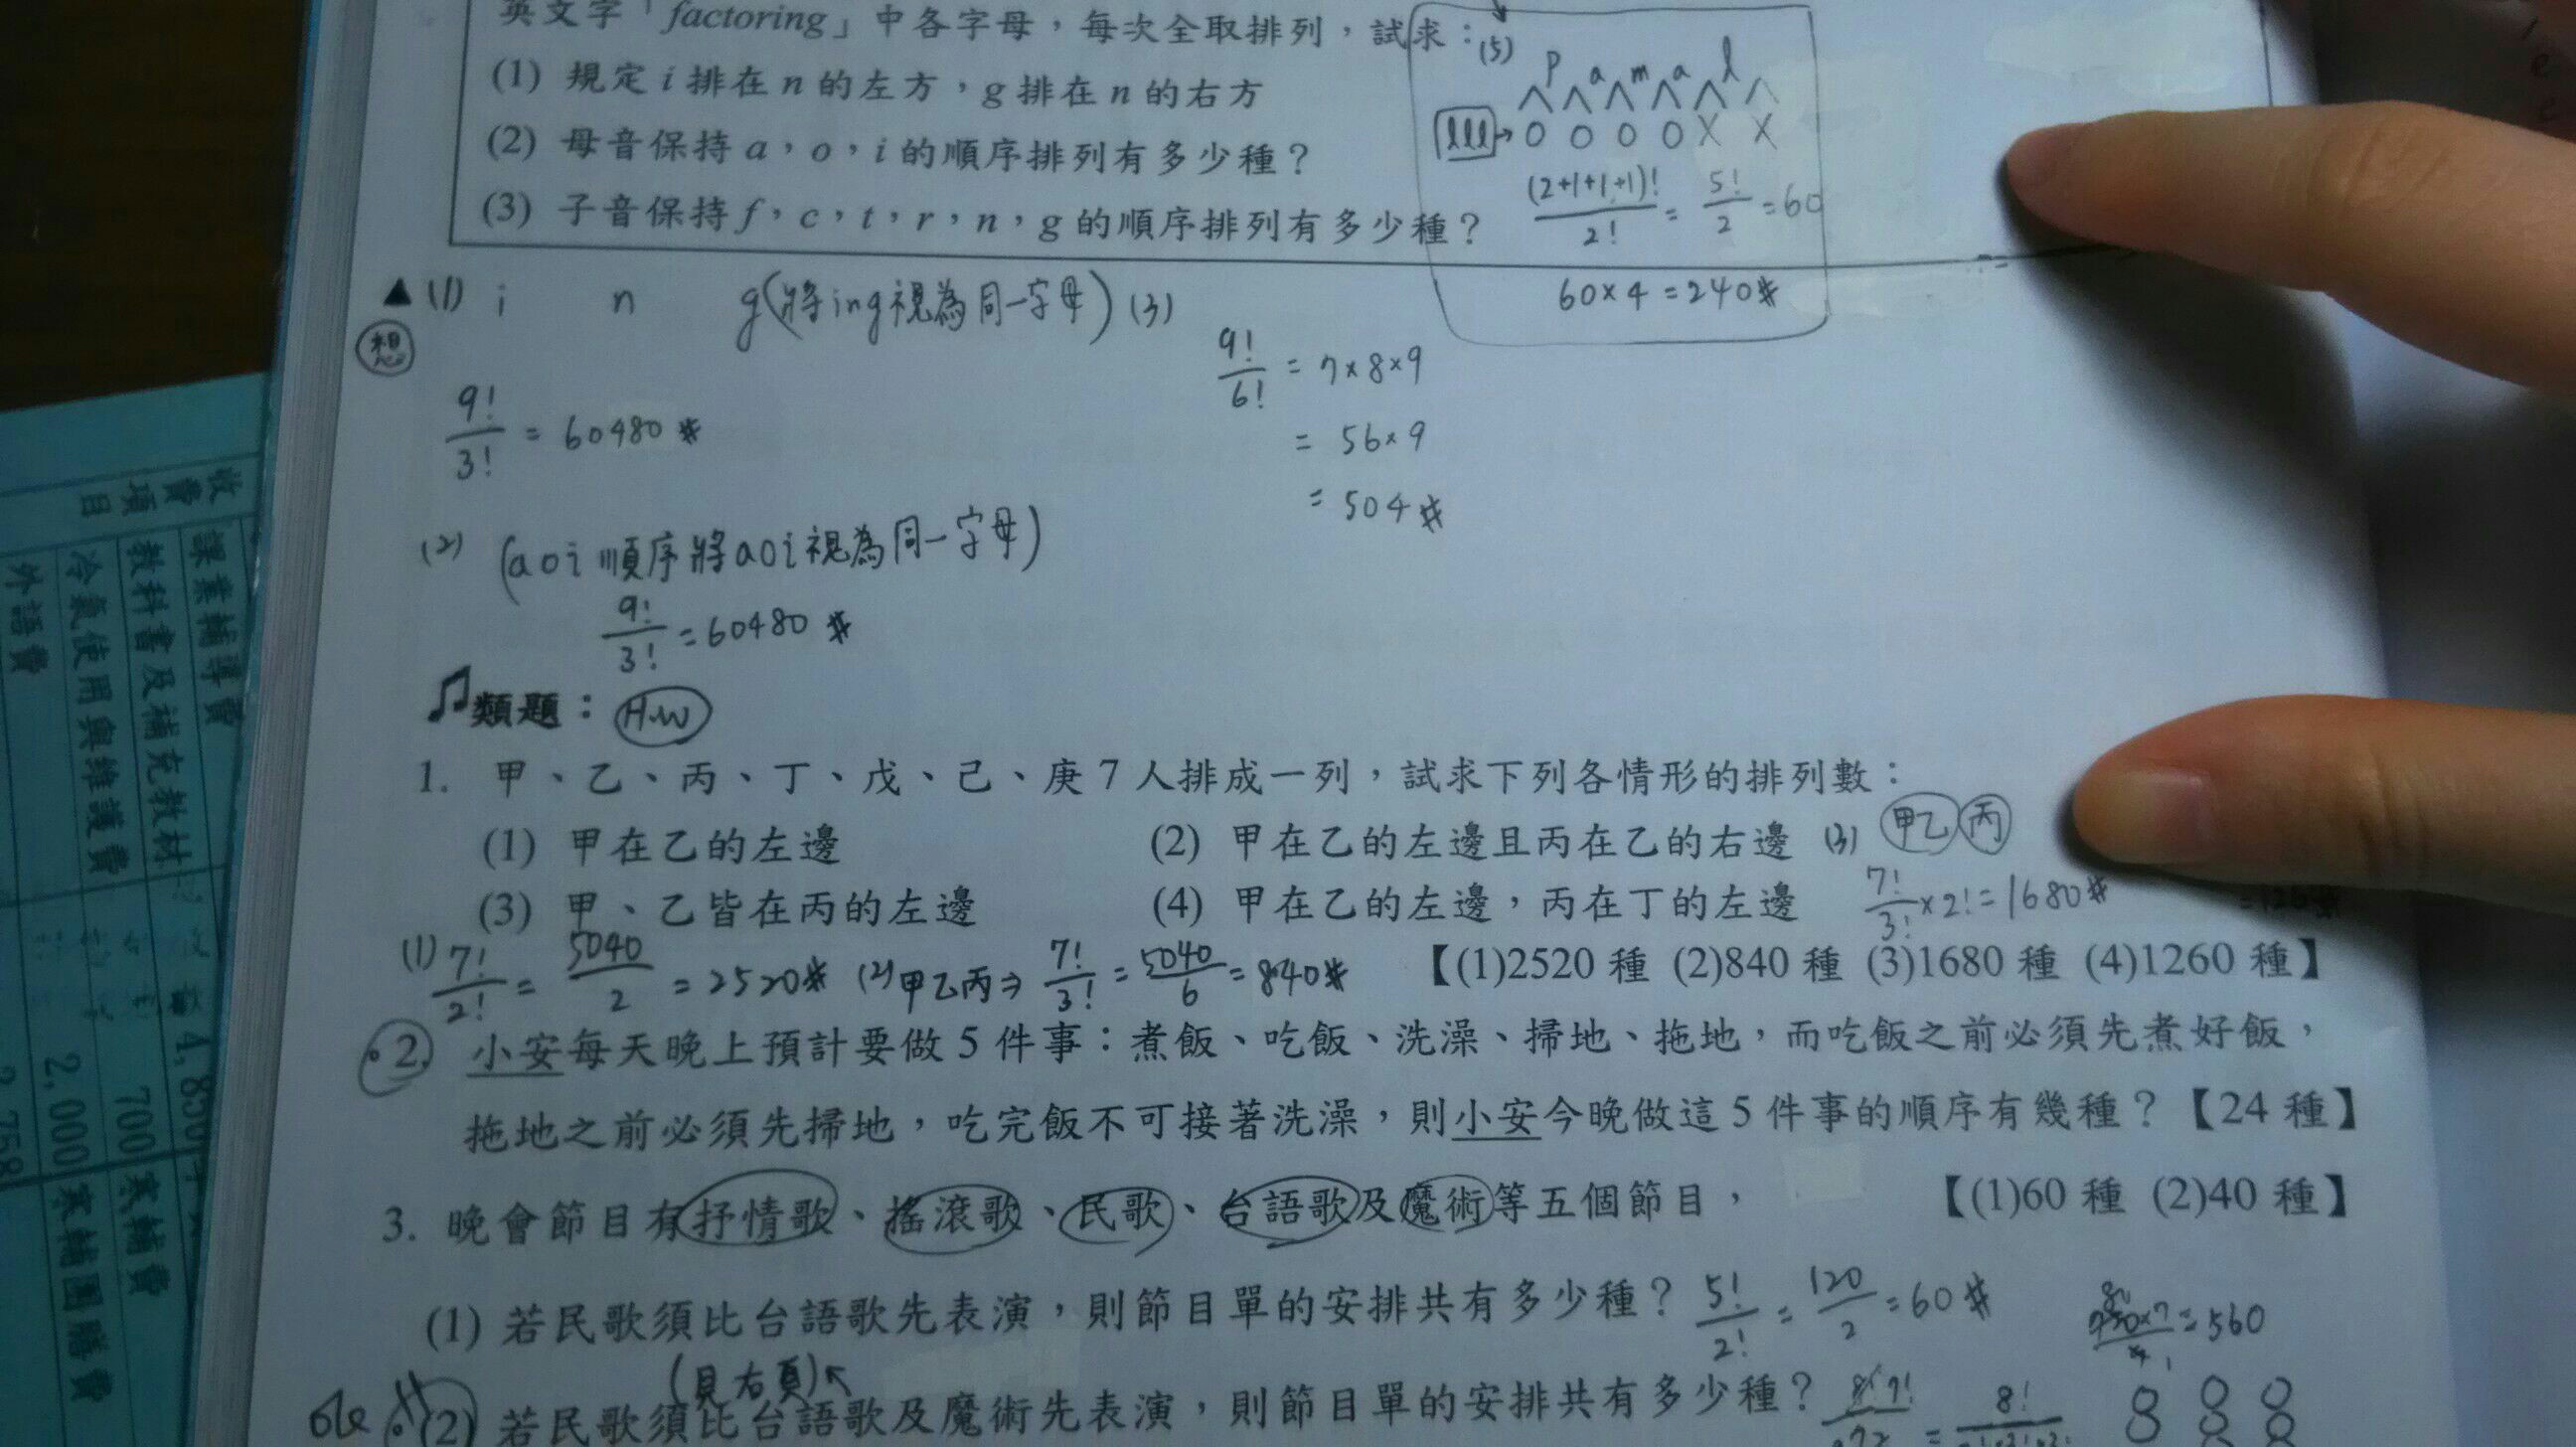 英文字「factoring」中各字母，每次全取排列，試求：
(1) 規定 i 排在 n 的左方，g 排在 n 的右方
(2) 母音保持 a，o，i 的順序排列有多少種？
(3) 子音保持 f，c，t，r，n，g 的順序排列有多少種？
(5)
p a m a l
lll→ O O O O X X
(2+1+1+1)!/2! = 5!/2 = 60
60×4=240#
▲(1) i n g(將ing視為同一字母)
想
9!/3! = 60480#
(2) (aoi順序將aoi視為同一字母)
9!/3! = 60480#
(3)
9!/6! = 7×8×9
= 56×9
= 504#
類題：H.W
1. 甲、乙、丙、丁、戊、己、庚 7 人排成一列，試求下列各情形的排列數：
(1) 甲在乙的左邊 (2) 甲在乙的左邊且丙在乙的右邊
(3) 甲、乙皆在丙的左邊 (4) 甲在乙的左邊，丙在丁的左邊
(3) 甲乙 丙
7!/3! ×2!=1680#
=1260#
(1) 7!/2! = 5040/2 = 2520# (2) 甲乙丙⇒ 7!/3! = 5040/6 = 840#
【(1)2520 種 (2)840 種 (3)1680 種 (4)1260 種】
2. 小安每天晚上預計要做 5 件事：煮飯、吃飯、洗澡、掃地、拖地，而吃飯之前必須先煮好飯，
拖地之前必須先掃地，吃完飯不可接著洗澡，則小安今晚做這 5 件事的順序有幾種？【24 種】
3. 晚會節目有抒情歌、搖滾歌、民歌、台語歌及魔術等五個節目， 【(1)60 種 (2)40 種】
(1) 若民歌須比台語歌先表演，則節目單的安排共有多少種？ 5!/2! = 120/2 = 60#
=560
(見右頁)
(2) 若民歌須比台語歌及魔術先表演，則節目單的安排共有多少種？
收費項目
課業輔導費
教科書及補充教材
冷氣使用與維護費
外語費
2,000
700
寒輔費
寒輔團膳費